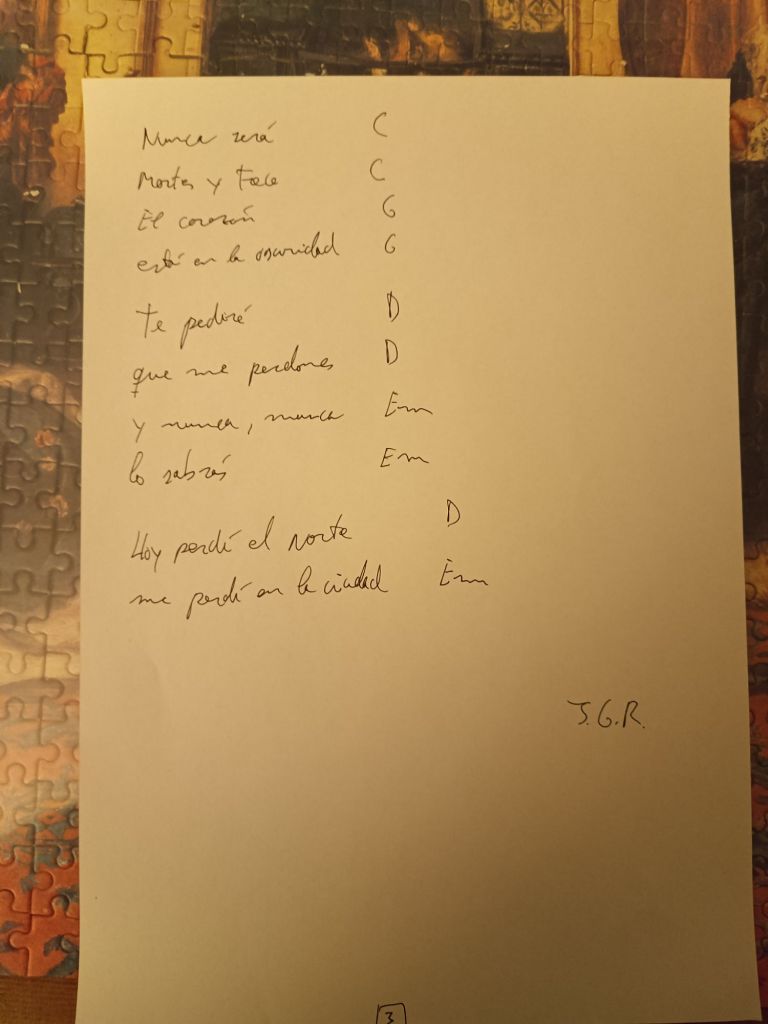 Nunca será C
Martes y trece C
El corazón G
está en la oscuridad G
Te pediré D
que me perdones D
y nunca, nunca Em
lo sabrás Em
Hoy perdí el norte D
me perdí en la ciudad Em
J.G.R.
3